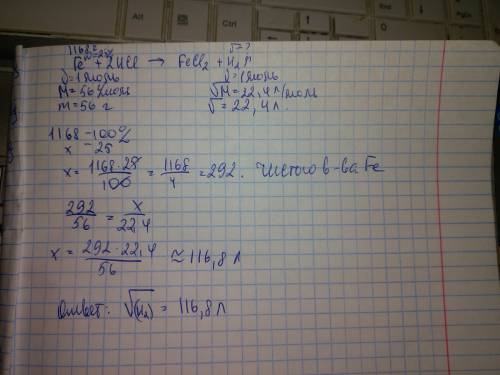 1168г V-?
Fe + 2HCl → FeCl₂ + H₂↑
ν = 1 моль ν = 1 моль
M = 56 г/моль VM = 22,4 л/моль
m = 56 г V = 22,4 л.
1168 - 100%
x - 25
x = 1168·25/100 = 1168/4 = 292. Чистого в-ва Fe
292/56 = x/22,4
x = 292·22,4/56 ≈ 116,8 л
Ответ: V(H₂) = 116,8 л
Alt
Ctrl